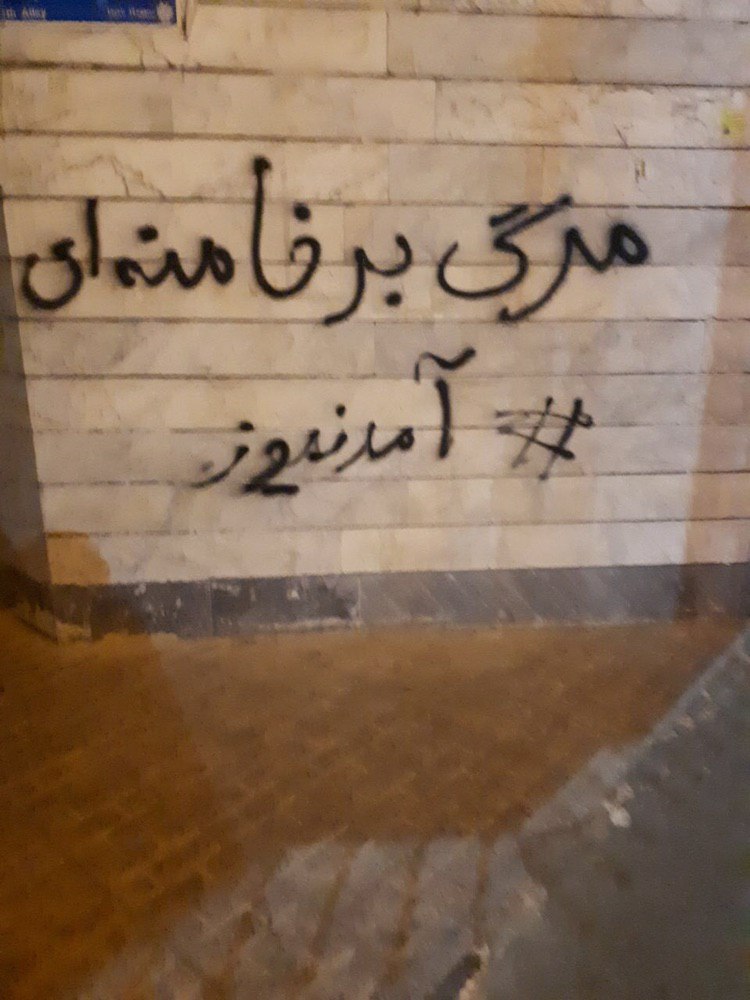 Alley
مرگ بر خامنه‌ای
# آمدنیوز